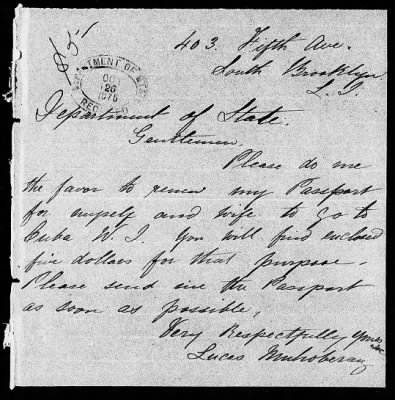 $5
403 Fifth Ave.
South Brooklyn
L. I.
DEPARTMENT OF STATE
OCT
26
1876
RECEIVED
Department of State.
Gentlemen
Please do me
the favor to renew my Passport
for myself and wife to go to
Cuba W. I. You will find enclosed
five dollars for that purpose.
Please send me the Passport
as soon as possible,
Very Respectfully Yours
Lucas